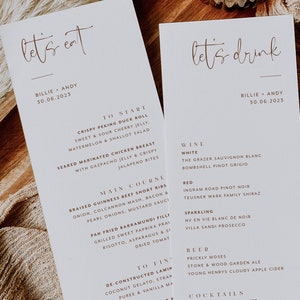 let's eat
BILLIE + ANDY
30.06.2023
TO START
CRISPY PEKING DUCK ROLL
SWEET & SOUR CHERRY JELLY,
WATERMELON & SHALLOT SALAD
SEARED MARINATED CHICKEN BREAST
WITH GAZPACHO JELLY & CRISPY
JALAPENO BITES
MAIN COURSE
BRAISED GUINNESS BEEF SHORT RIBS
ONION, COLCANNON MASH, BACON
PEARL ONIONS, MUSTARD SAUCE
PAN FRIED BARRAMUNDI FILLET
GRILLED SWEET PAPRIKA PRAWN
RISOTTO, ASPARAGUS &
TO FIN
DE-CONSTRUCTED LAMING
COCONUT GELATO, STRAW
let's drink
BILLIE + ANDY
30.06.2023
WINE
WHITE
THE GRAZER SAUVIGNON BLANC
BOMBSHELL PINOT GRIGIO
RED
INGRAM ROAD PINOT NOIR
TEUSNER WARK FAMILY SHIRAZ
SPARKLING
NV EN VIE BLANC DE NOIR
VILLA SANDI PROSECCO
BEER
PRICKLY MOSES
STONE & WOOD GARDEN ALE
YOUNG HENRYS CLOUDY APPLE CIDER
COCKTAILS